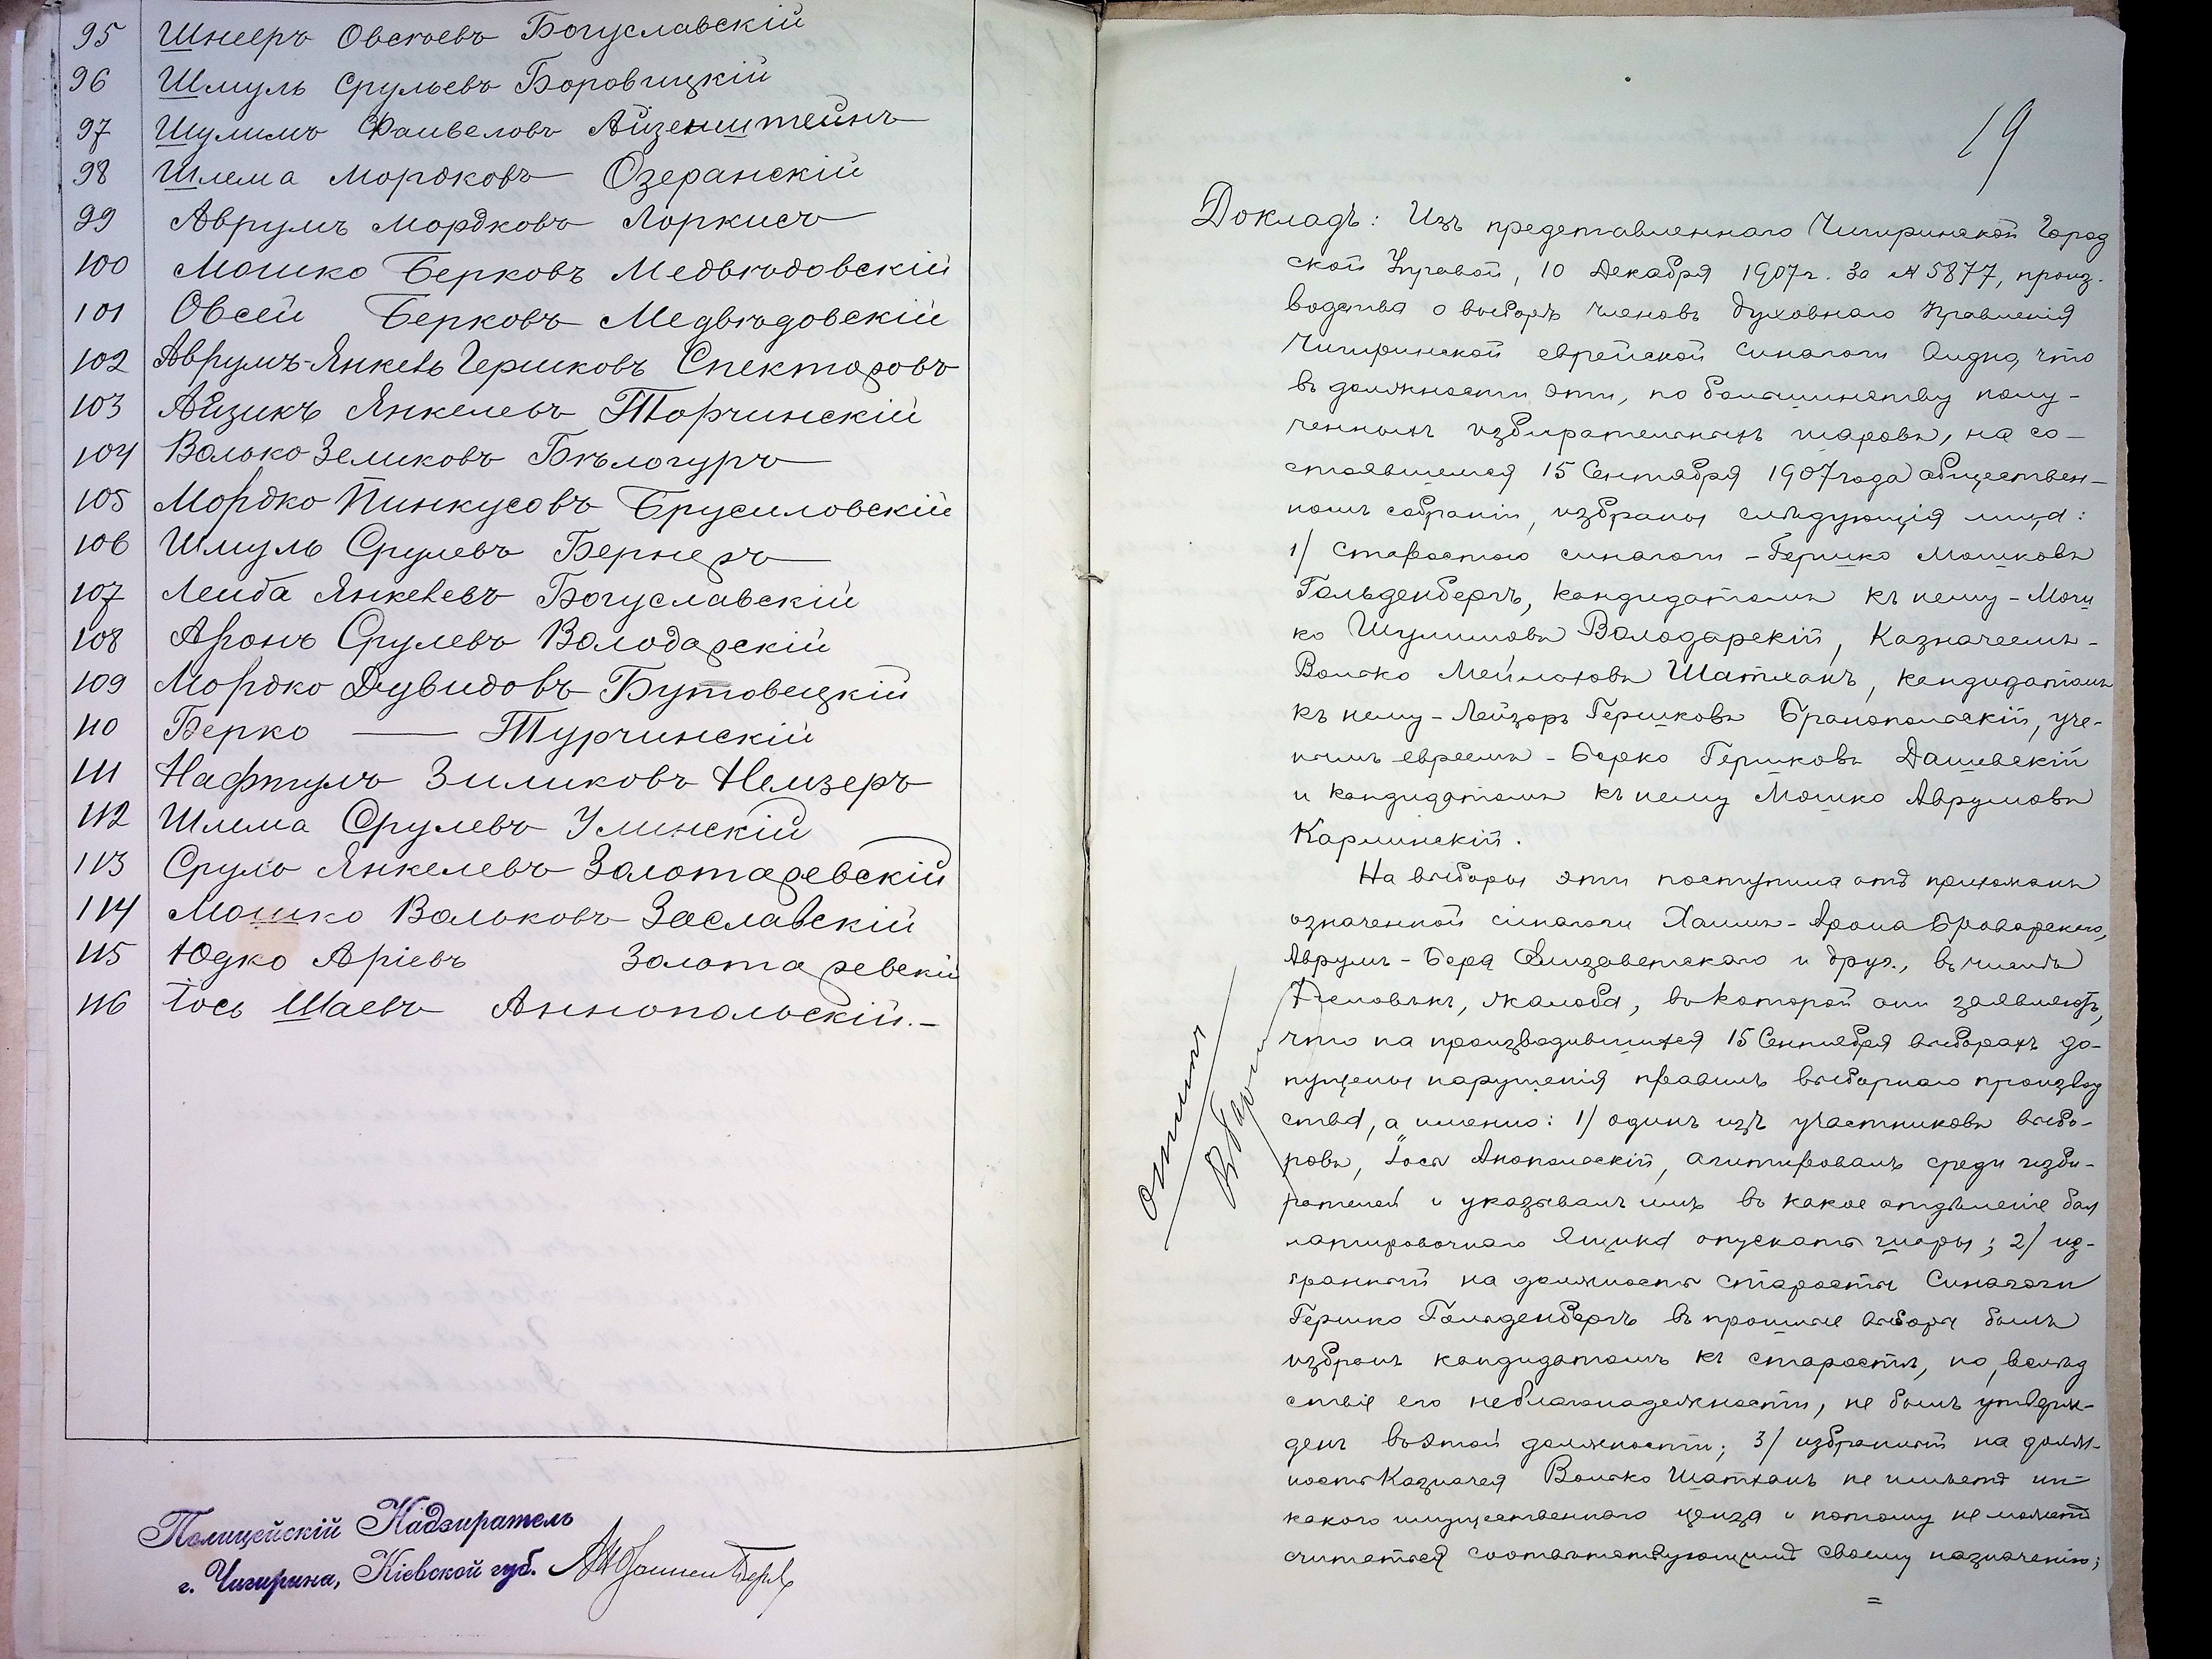 95 Шнееръ Овсѣевъ Богуславскій
96 Шмуль Срульевъ Боровицкій
97 Шулимъ Фаивеловъ Айзенштейнъ
98 Шлема Мордковъ Озеранскій
99 Аврумъ Мордковъ Лоркисъ
100 Мошко Берковъ Медвѣдовскій
101 Овсей Берковъ Медвѣдовскій
102 Аврумъ-Янкель Гершковъ Спекторовъ
103 Айзикъ Янкелевъ Торчинскій
104 Волько Зеликовъ Бѣлогуръ
105 Мордко Пинкусовъ Брусиловскій
106 Шмуль Срулевъ Бернеръ
107 Леиба Янкелевъ Богуславскій
108 Аронъ Срулевъ Володарскій
109 Мордко Дувидовъ Бутовецкій
110 Берко — Турчинскій
111 Нафтулъ Зиликовъ Немзеръ
112 Шлема Срулевъ Улинскій
113 Сруль Янкелевъ Золотаревскій
114 Мошко Вольковъ Заславскій
115 Юдко Аріевъ Золотаревскій
116 Іось Шаевъ Аннопольскій.-
Полицейскій Надзиратель
г. Чигирина, Кіевской губ.
19
Докладъ: Изъ представленнаго Чигиринской Город
ской Управой, 10 Декабря 1907 г. за № 5877, произ-
водства о выборѣ членовъ духовнаго Правленія
Чигиринской еврейской синагоги видно, что
въ должности эти, по большинству полу-
ченныхъ избирательныхъ шаровъ, на со-
стоявшемся 15 Сентября 1907 года обществен-
номъ собраніи, избраны слѣдующія лица:
1/ Старостою синагоги - Гершко Мошковъ
Гольденбергъ, кандидатомъ къ нему - Мош
ко Шулимовъ Володарскій, Казначеемъ -
Волько Мейлаховъ Шатханъ, кандидатомъ
къ нему - Лейзоръ Гершковъ Бранопольскій, уче-
нымъ евреемъ - Берко Гершковъ Дашевскій
и кандидатомъ къ нему Мошко Аврумовъ
Карлинскій.
На выборы эти поступила отъ прихожанъ
означенной синагоги Хаимъ-Арона Броварскаго,
Аврумъ-Бера Елизаветскаго и друг., въ числѣ
7 человѣкъ, жалоба, въ которой они заявляютъ,
что на производившихся 15 Сентября выборахъ до-
пущены нарушенія правилъ выборнаго производ
ства, а именно: 1/ одинъ изъ участниковъ выбо-
ровъ, Іось Анопольскій, агитировалъ среди изби-
рателей и указывалъ имъ въ какое отдѣленіе бал
лотировочнаго ящика опускать шары; 2/ из-
бранный на должность старосты Синагоги
Гершко Гольденбергъ въ прошлые выборы былъ
избранъ кандидатомъ къ старостѣ, но, вслѣд
ствіе его неблагонадежности, не былъ утверж-
денъ въ этой должности; 3/ избранный на долж-
ность Казначея Волько Шатханъ не имѣетъ ни-
какого имущественнаго ценза и потому не можетъ
считаться соотвѣтствующимъ своему назначенію;